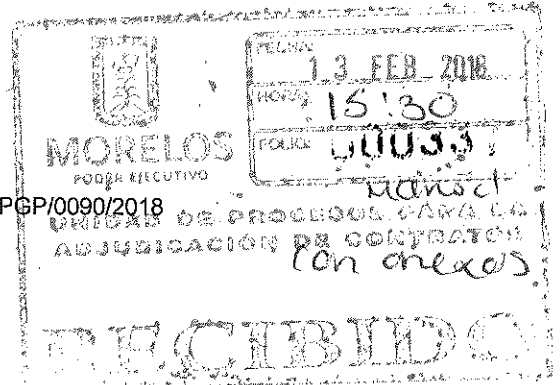 FECHA:
13 FEB 2018
HORA:
15:30
MORELOS
FOLIO:
PODER EJECUTIVO
PGP/0090/2018
UNIDAD DE PROCESOS PARA LA
ADJUDICACIÓN DE CONTRATOS
con anexos
RECIBIDO